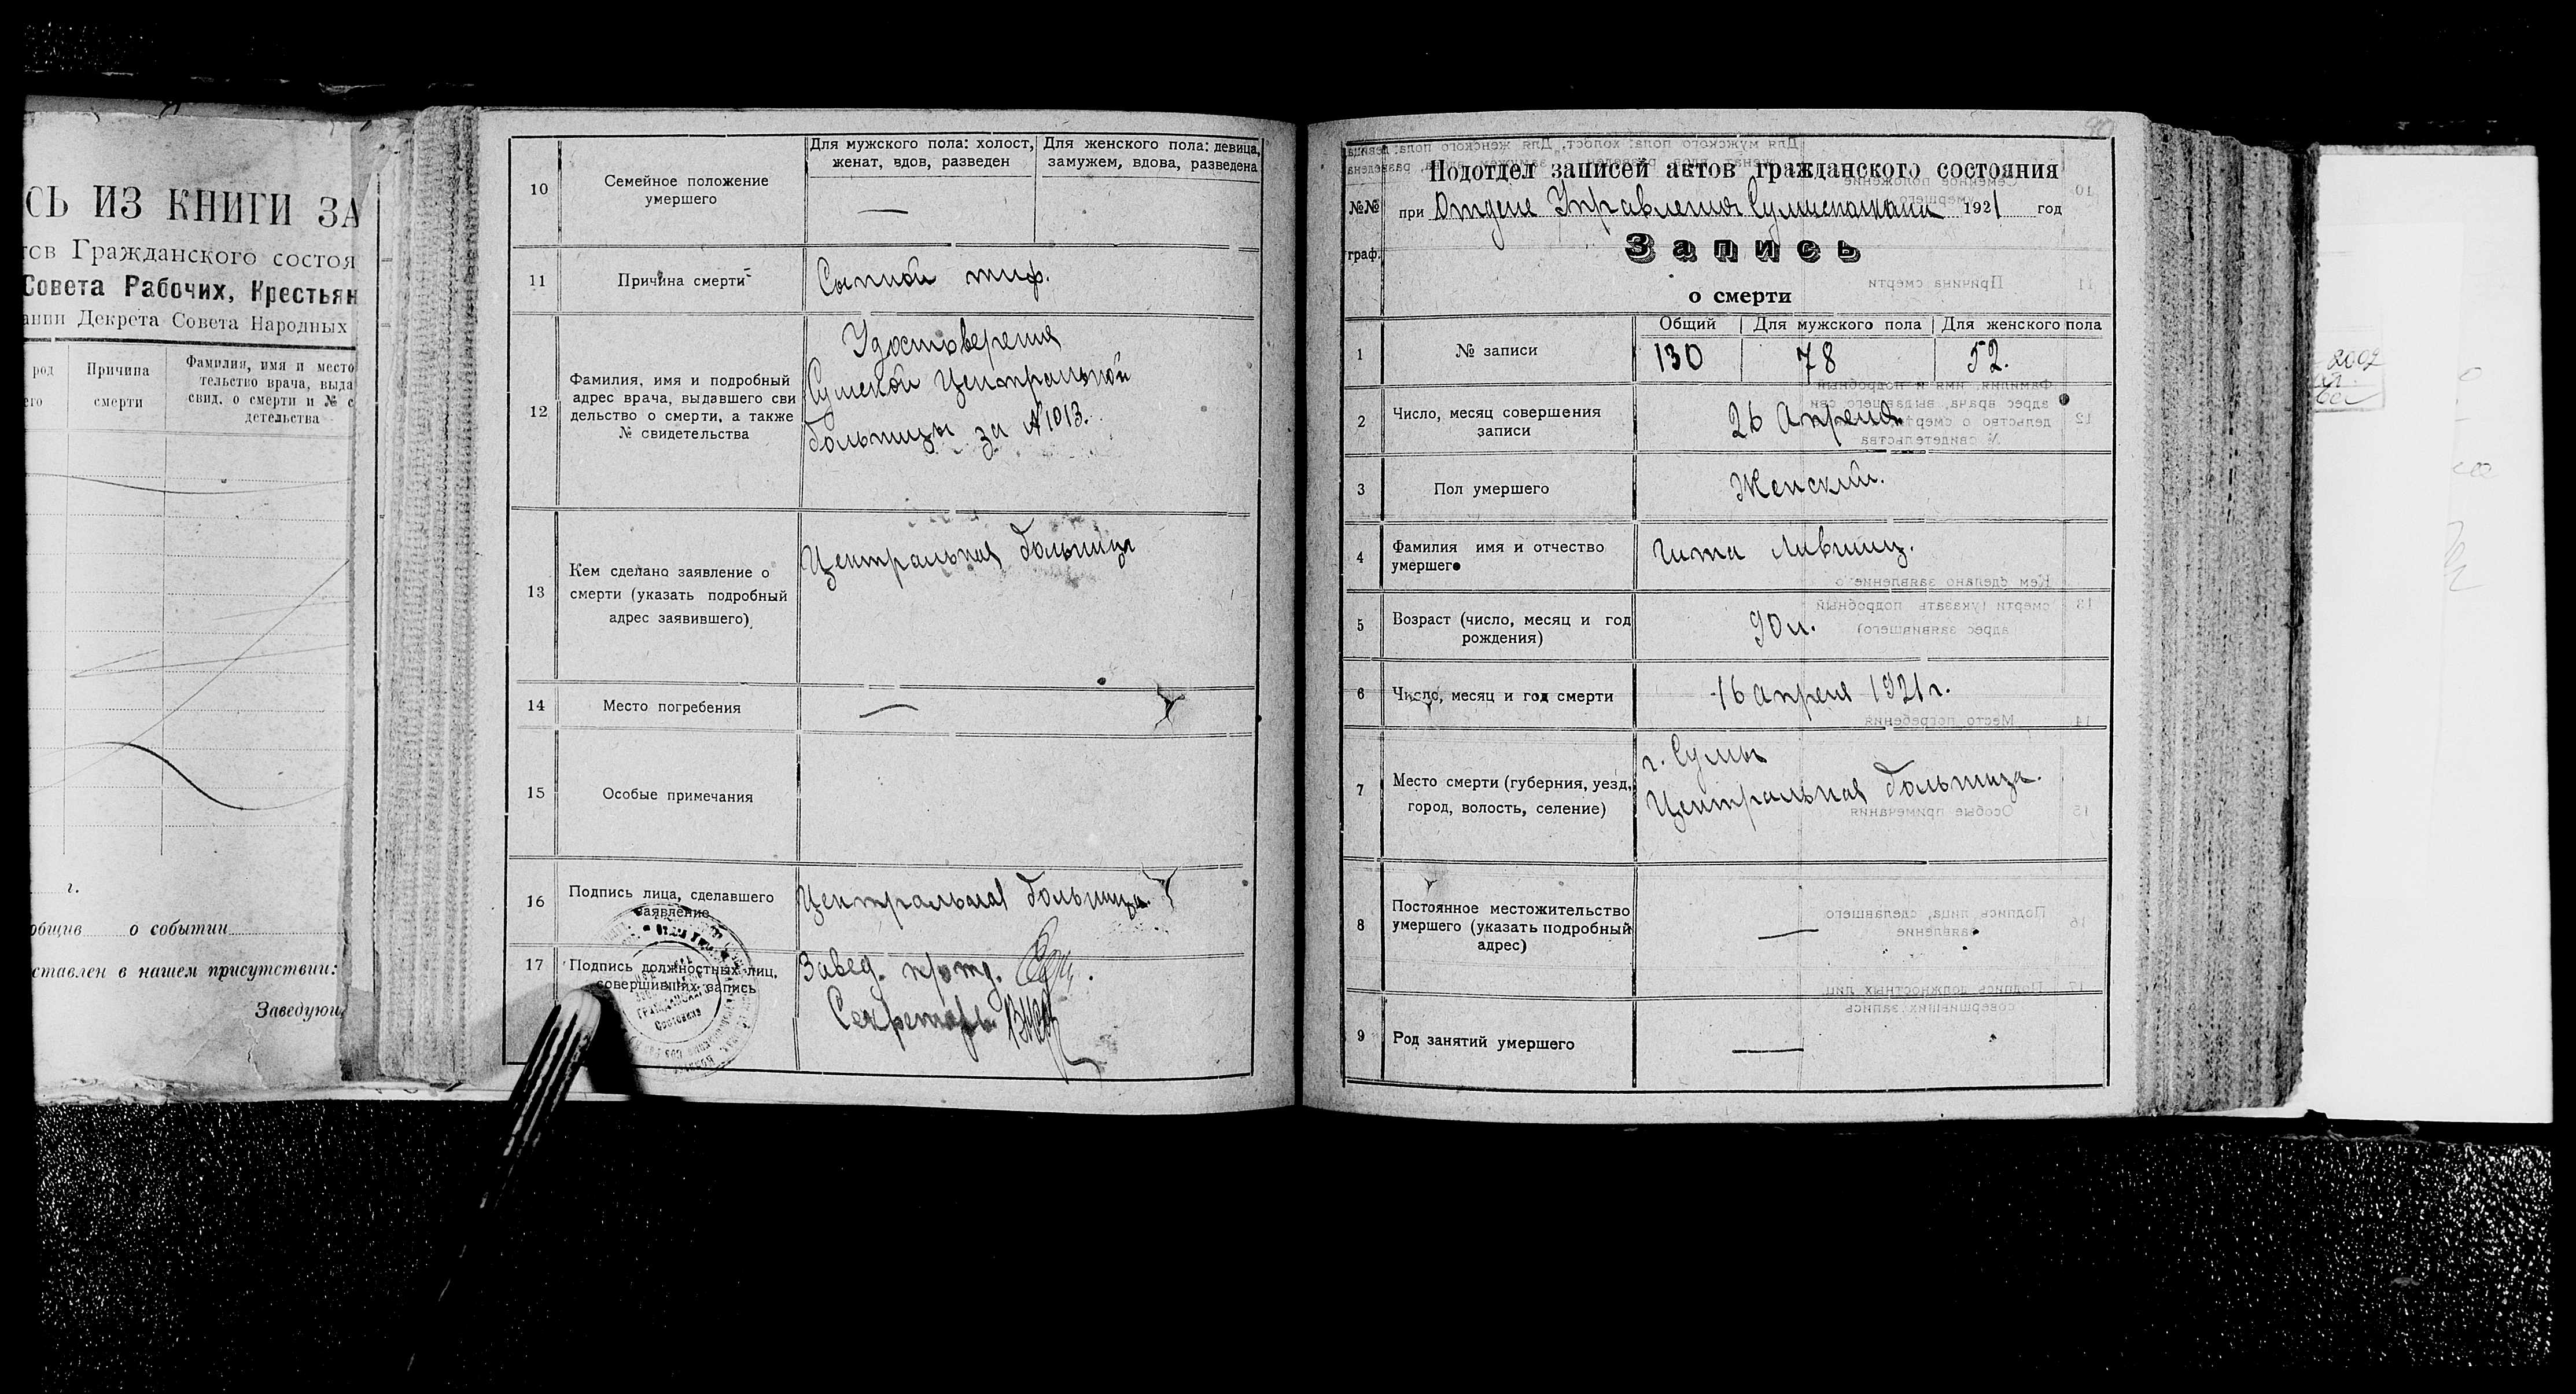 СЬ ИЗ КНИГИ ЗА
тов Гражданского состоя
Совета Рабочих, Крестьян
ании Декрета Совета Народных
род
его
Причина
смерти
Фамилия, имя и место
тельство врача, выда
свид. о смерти и № с
детельства
г.
общив о событии
ставлен в нашем присутствии:
Заведующ
10
Семейное положение
умершего
Для мужского пола: холост,
женат, вдов, разведен
Для женского пола: девица,
замужем, вдова, разведена
—
11
Причина смерти
Сыпной тиф.
12
Фамилия, имя и подробный
адрес врача, выдавшего сви
дельство о смерти, а также
№ свидетельства
Удостоверения
Сумской Центральной
больницы за № 1013.
13
Кем сделано заявление о
смерти (указать подробный
адрес заявившего)
Центральная больница
14
Место погребения
—
15
Особые примечания
16
Подпись лица, сделавшего
заявление
Центральная больница.
17
Подпись должностных лиц,
совершивших запись
Завед. п/отд.
Секретарь
№№
граф.
Подотдел записей актов гражданского состояния
при Отделе Управления Сумисполкома 1921 год
Запись
о смерти
1
№ записи
Общий
Для мужского пола
Для женского пола
130
78
52.
2
Число, месяц совершения
записи
26 Апреля
3
Пол умершего
Женский.
4
Фамилия имя и отчество
умершего
Гита Лившиц.
5
Возраст (число, месяц и год
рождения)
90 л.
6
Число, месяц и год смерти
16 апреля 1921 г.
7
Место смерти (губерния, уезд,
город, волость, селение)
г. Сумы
Центральная больница.
8
Постоянное местожительство
умершего (указать подробный
адрес)
—
9
Род занятий умершего
—
2002